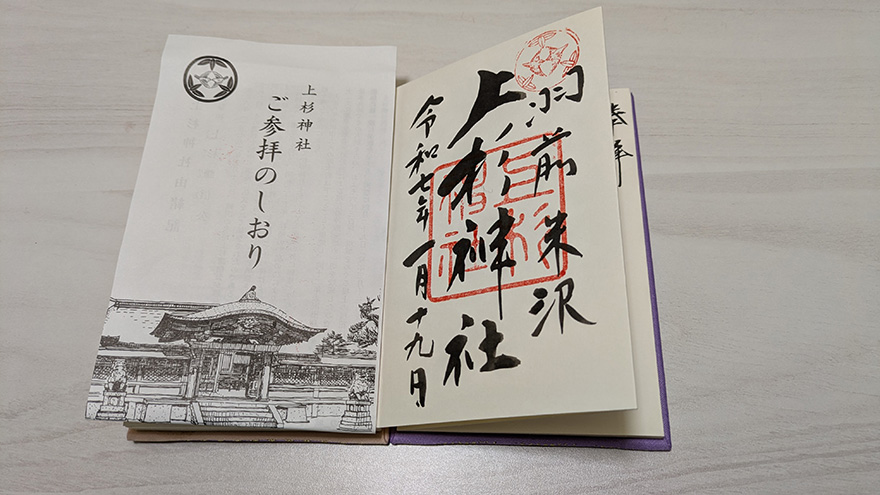 上杉神社
ご参拝のしおり
羽前米沢
上杉神社
令和七年一月十九日
上杉神社